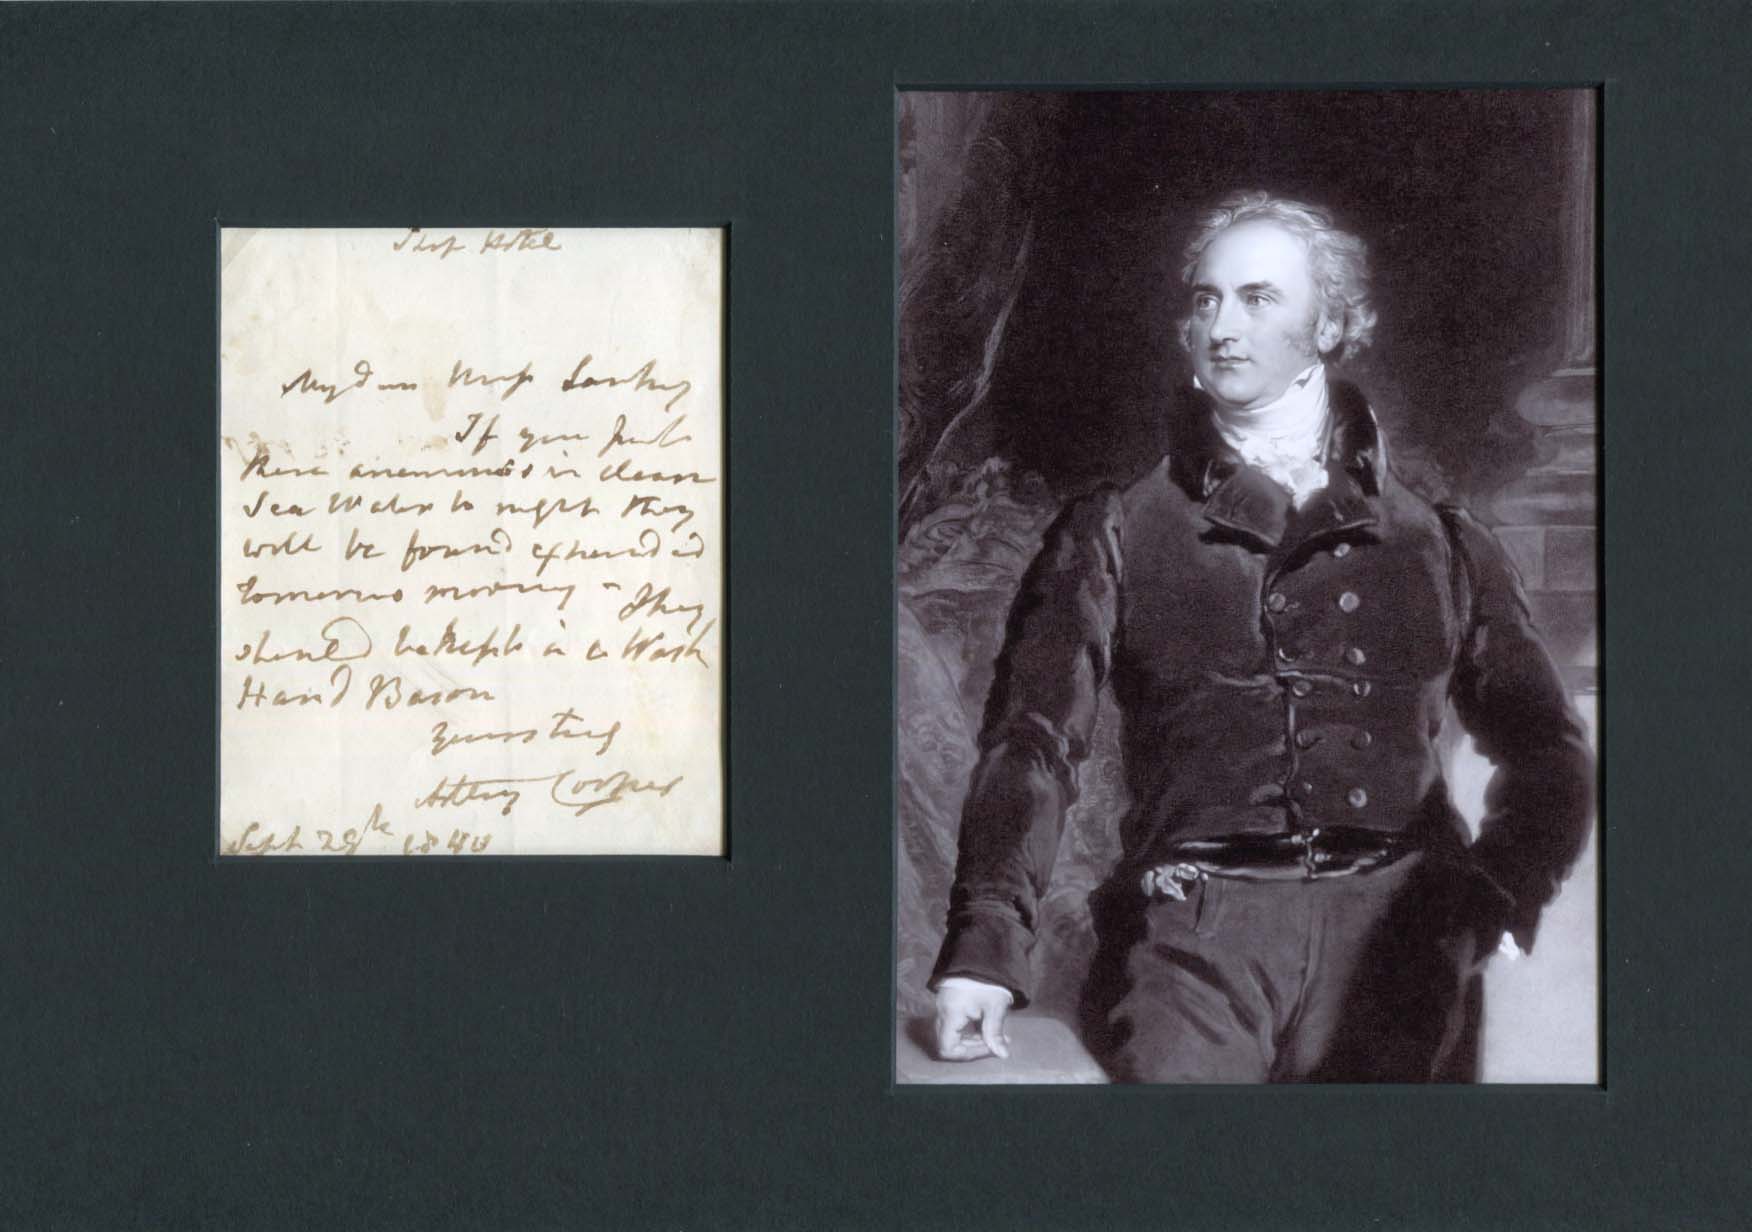 Ship Hotel
My dear Miss Sankey
If you put
these anemonies in clean
Sea Water to night they
will be found expanded
tomorrow morning - They
should be kept in a Wash
Hand Bason
Yours truly
Astley Cooper
Sept 29th 1840